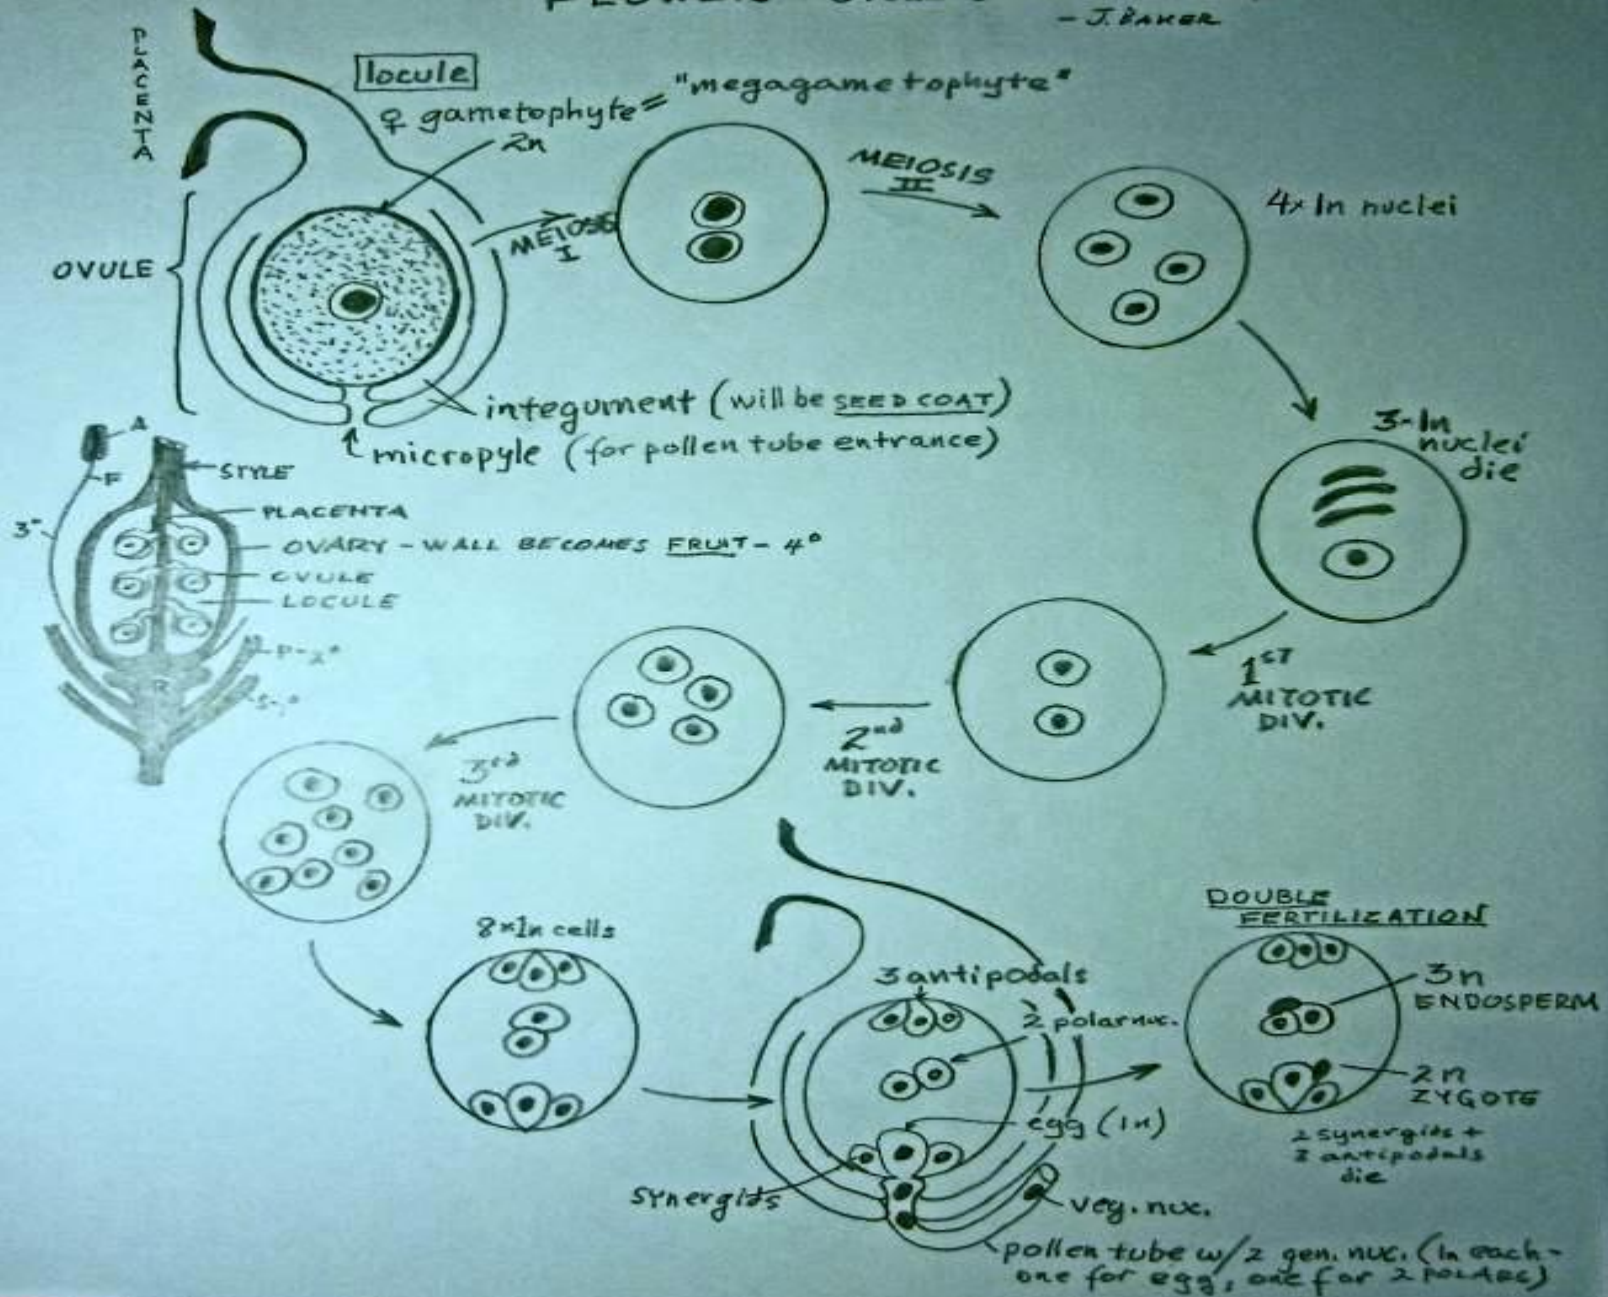 - J. BAKER
PLACENTA
locule
♀ gametophyte = "megagametophyte"
2n
MEIOSIS
I
MEIOSIS
II
4x 1n nuclei
OVULE
integument (will be SEED COAT)
micropyle (for pollen tube entrance)
3-1n
nuclei
die
A
F
3°
STYLE
PLACENTA
OVARY - WALL BECOMES FRUIT - 4°
OVULE
LOCULE
P-2°
S-1°
R
1ST
MITOTIC
DIV.
2nd
MITOTIC
DIV.
3rd
MITOTIC
DIV.
8x1n cells
3 antipodals
2 polar nuc.
egg (1n)
synergids
veg. nuc.
pollen tube w/2 gen. nuc. (1n each-
one for egg, one for 2 POLARS)
DOUBLE
FERTILIZATION
3n
ENDOSPERM
2n
ZYGOTE
2 synergids +
3 antipodals
die